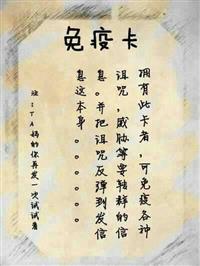 免疫卡
拥有此卡者，可免疫各种
诅咒，威胁等要转群的信
息。并把诅咒反弹到发信
息这本身。。。。。。
注：TA妈的你再发一次试试看